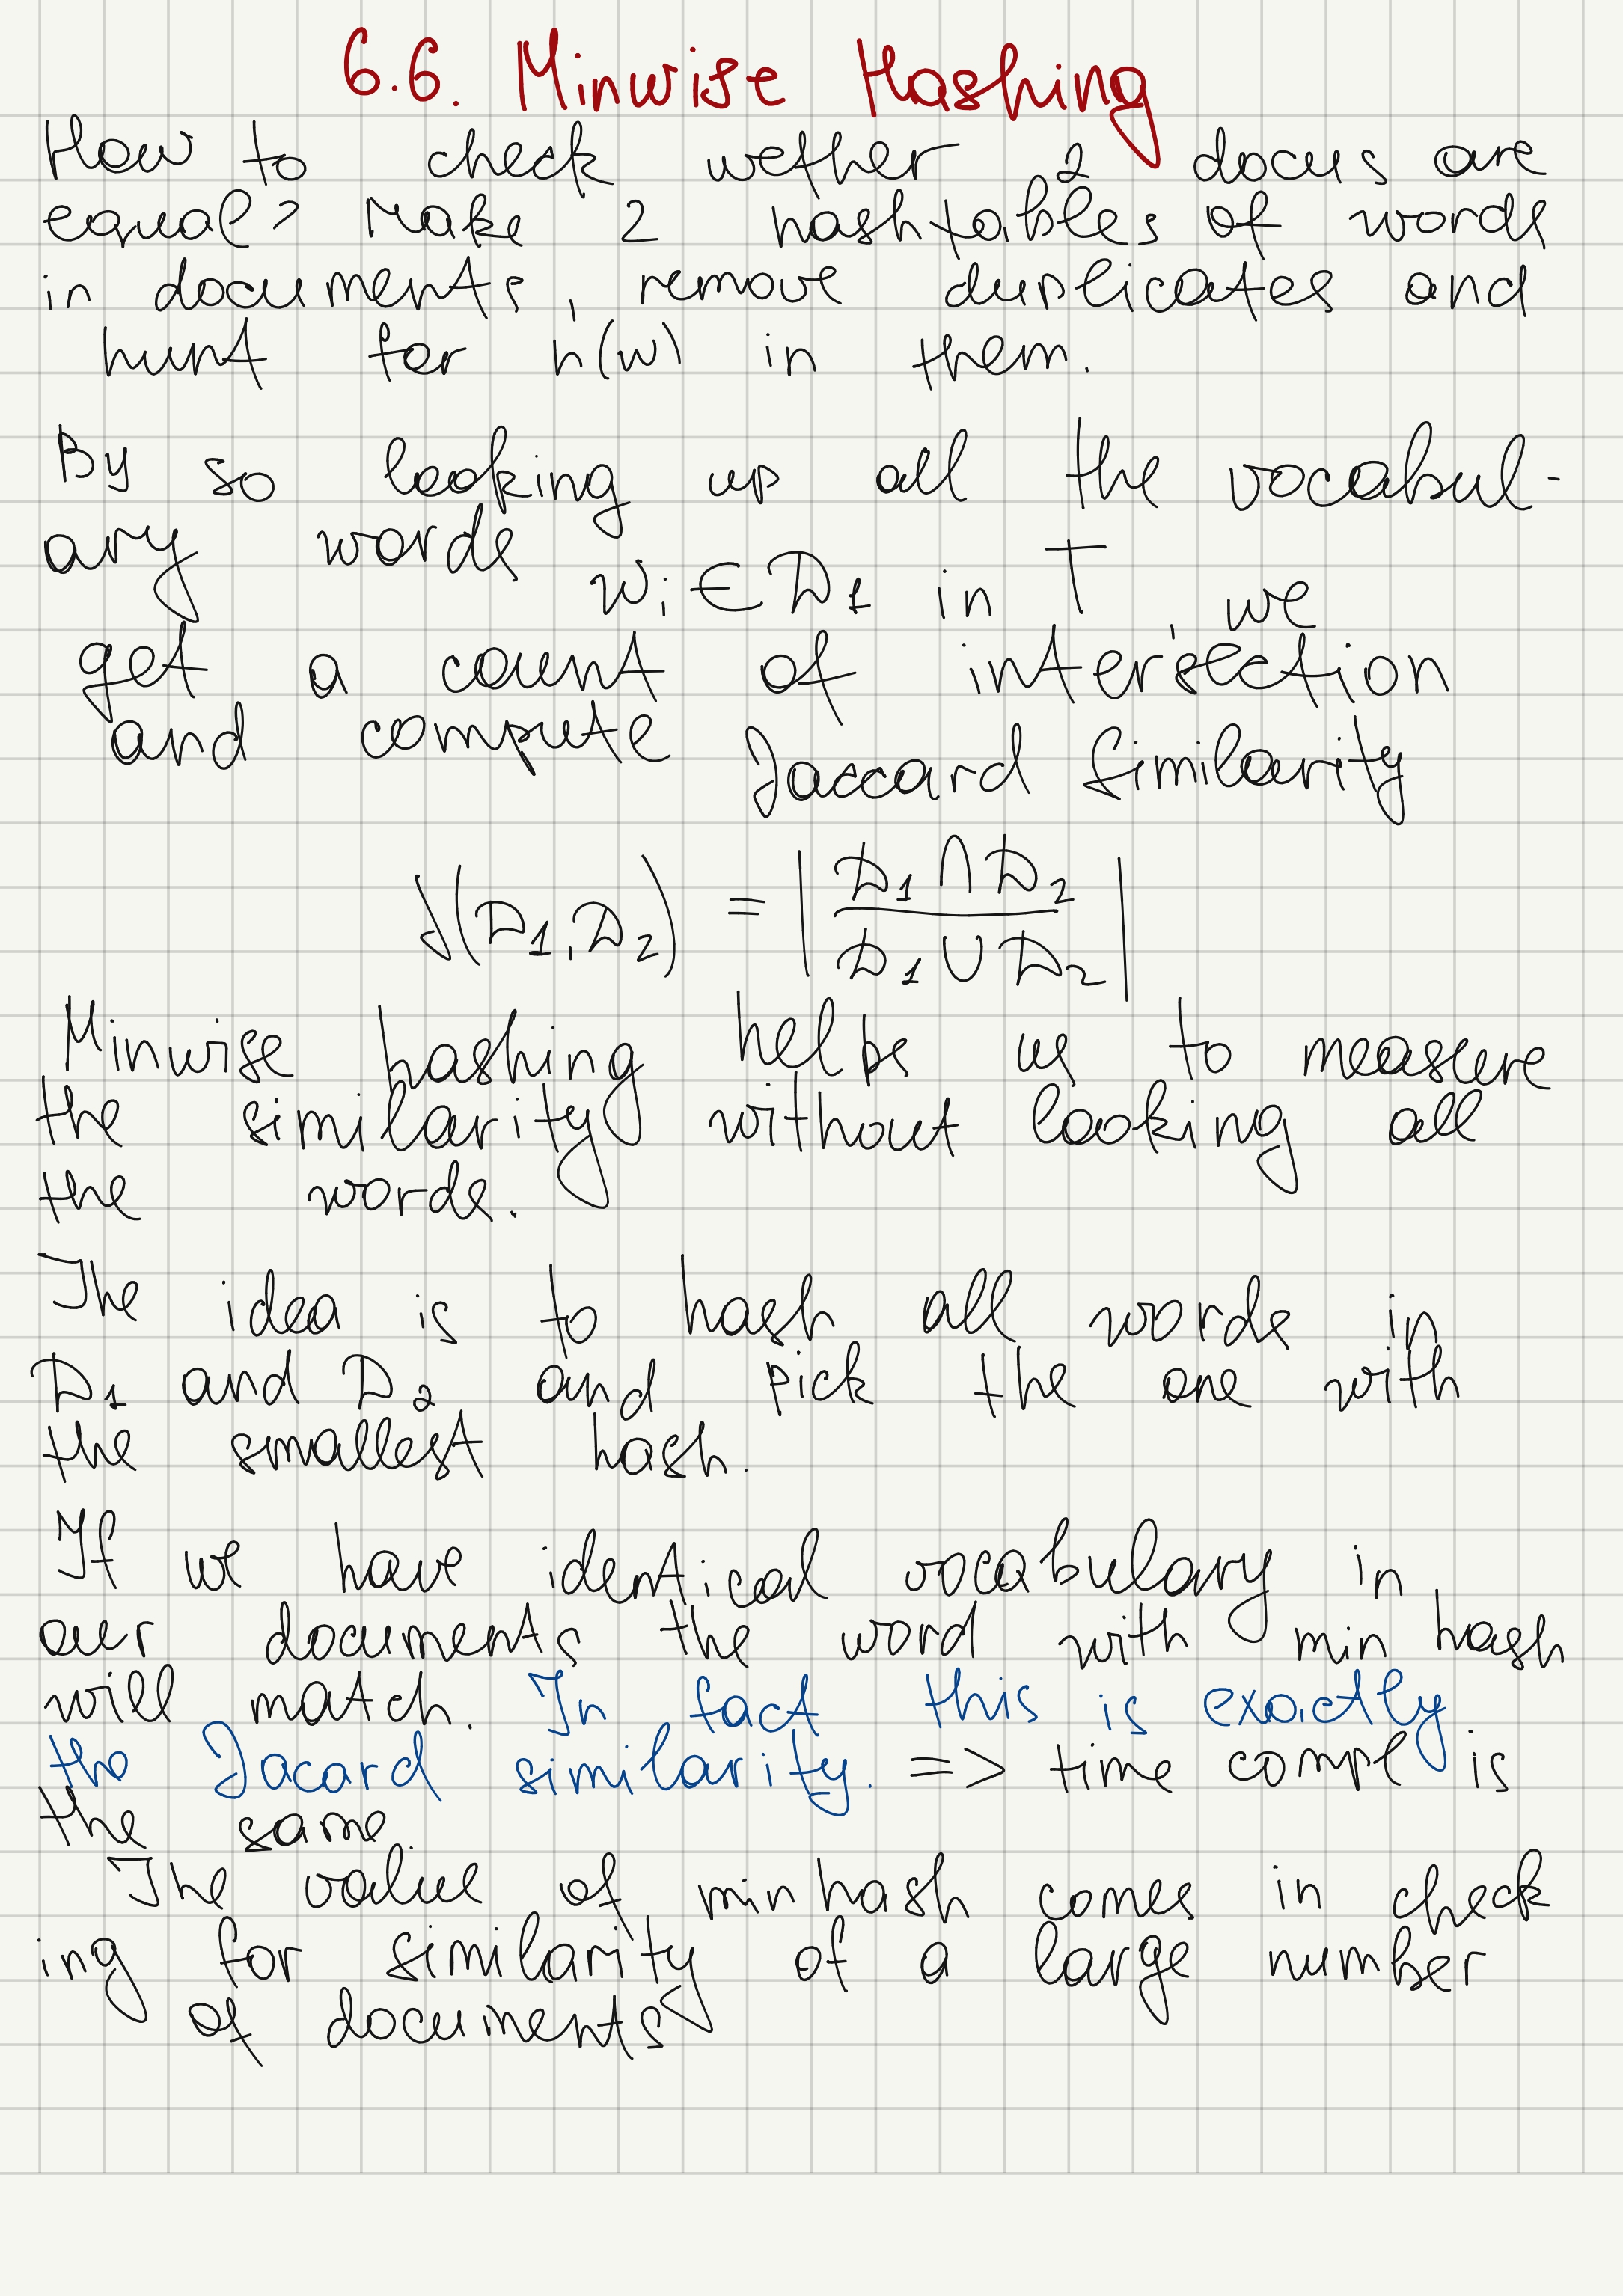 6.6. Minwise Hashing
How to check wether 2 docus are
equal? Make 2 hashtables of words
in documents, remove duplicates and
hunt for h(w) in them.
By so looking up all the vocabul-
ary words wi ∈ D1 in T we
get a count of intersection
and compute Jaccard Similarity
J(D1,D2) = | D1 ∩ D2 / D1 ∪ D2 |
Minwise hashing helps us to measure
the similarity without looking all
the words.
The idea is to hash all words in
D1 and D2 and pick the one with
the smallest hash.
If we have identical vocabulary in
our documents the word with min hash
will match. In fact this is exactly
the Jacard similarity. => time compl is
the same
The value of minhash comes in check
ing for similarity of a large number
of documents